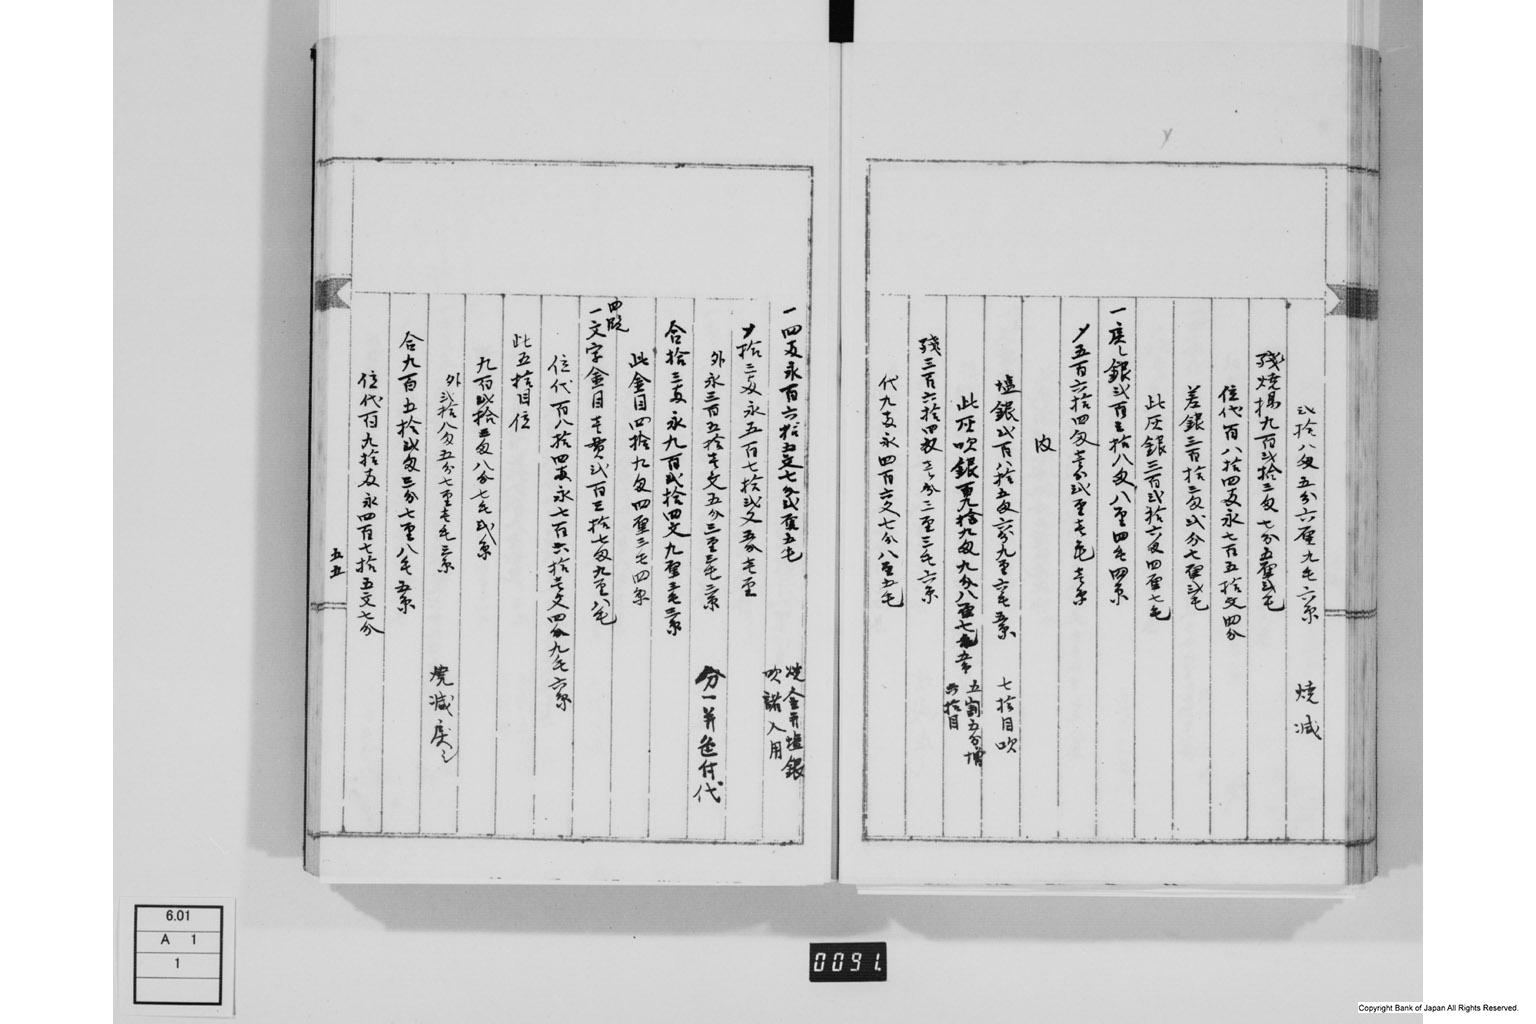 弐拾八匁五分六厘九毛六糸 焼減
残焼揚九百弐拾三匁七分五厘弐毛
位代百八拾四両永七百五拾文四分
差銀三百拾二匁弐分七厘弐毛
此灰銀三百弐拾六匁四厘七毛
一戻し銀弐百三拾八匁八厘四毛四糸
〆五百六拾四匁壱分弐厘壱毛壱糸
内
塩銀弐百八拾五匁六分九厘六毛五糸 七拾目吹
此灰吹銀百九拾九匁九分八厘七毛五糸 五割五分増
六拾目
残三百六拾四匁三分二厘三毛六糸
代九両永四百六文七分八厘五毛
一四両永百六拾五文七分弐厘五毛 焼金并塩銀
吹諸入用
〆拾三両永五百七拾弐文五分壱厘
外永三百五拾壱文五分三厘三毛三糸 分一并色付代
合拾三両永九百弐拾四文九厘三毛三糸
此金目四拾九匁四厘三毛四糸
四段
一文字金目壱貫弐百三拾七匁九厘八毛
位代百八拾四両永七百六拾壱文四分九毛六糸
此五拾目位
九百弐拾三匁八分七毛弐糸
外弐拾八匁五分七厘壱毛三糸 焼減戻し
合九百五拾弐匁三分七厘八毛五糸
位代百九拾両永四百七拾五文七分
五五
0091.
6.01
A 1
1
Copyright Bank of Japan All Rights Reserved.